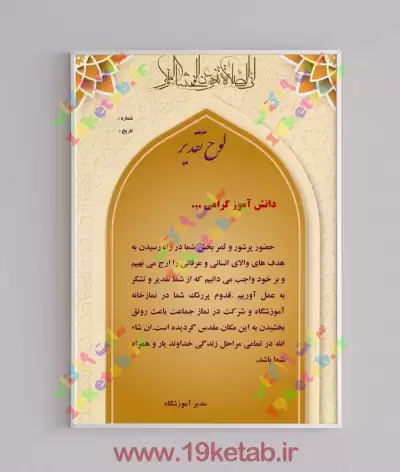 ان الصلاة تنهی عن الفحشاء و المنکر
شماره :
تاریخ :
لوح تقدیر
دانش آموز گرامی ...
حضور پرشور و ثمر بخش شما در راه رسیدن به
هدف های والای انسانی و عرفانی را ارج می نهیم
و بر خود واجب می دانیم که از شما تقدیر و تشکر
به عمل آوریم .قدوم پررنگ شما در نمازخانه
آموزشگاه و شرکت در نماز جماعت باعث رونق
بخشیدن به این مکان مقدس گردیده است.ان شاء
الله در تمامی مراحل زندگی خداوند یار و همراه
شما باشد.
مدیر آموزشگاه
www.19ketab.ir